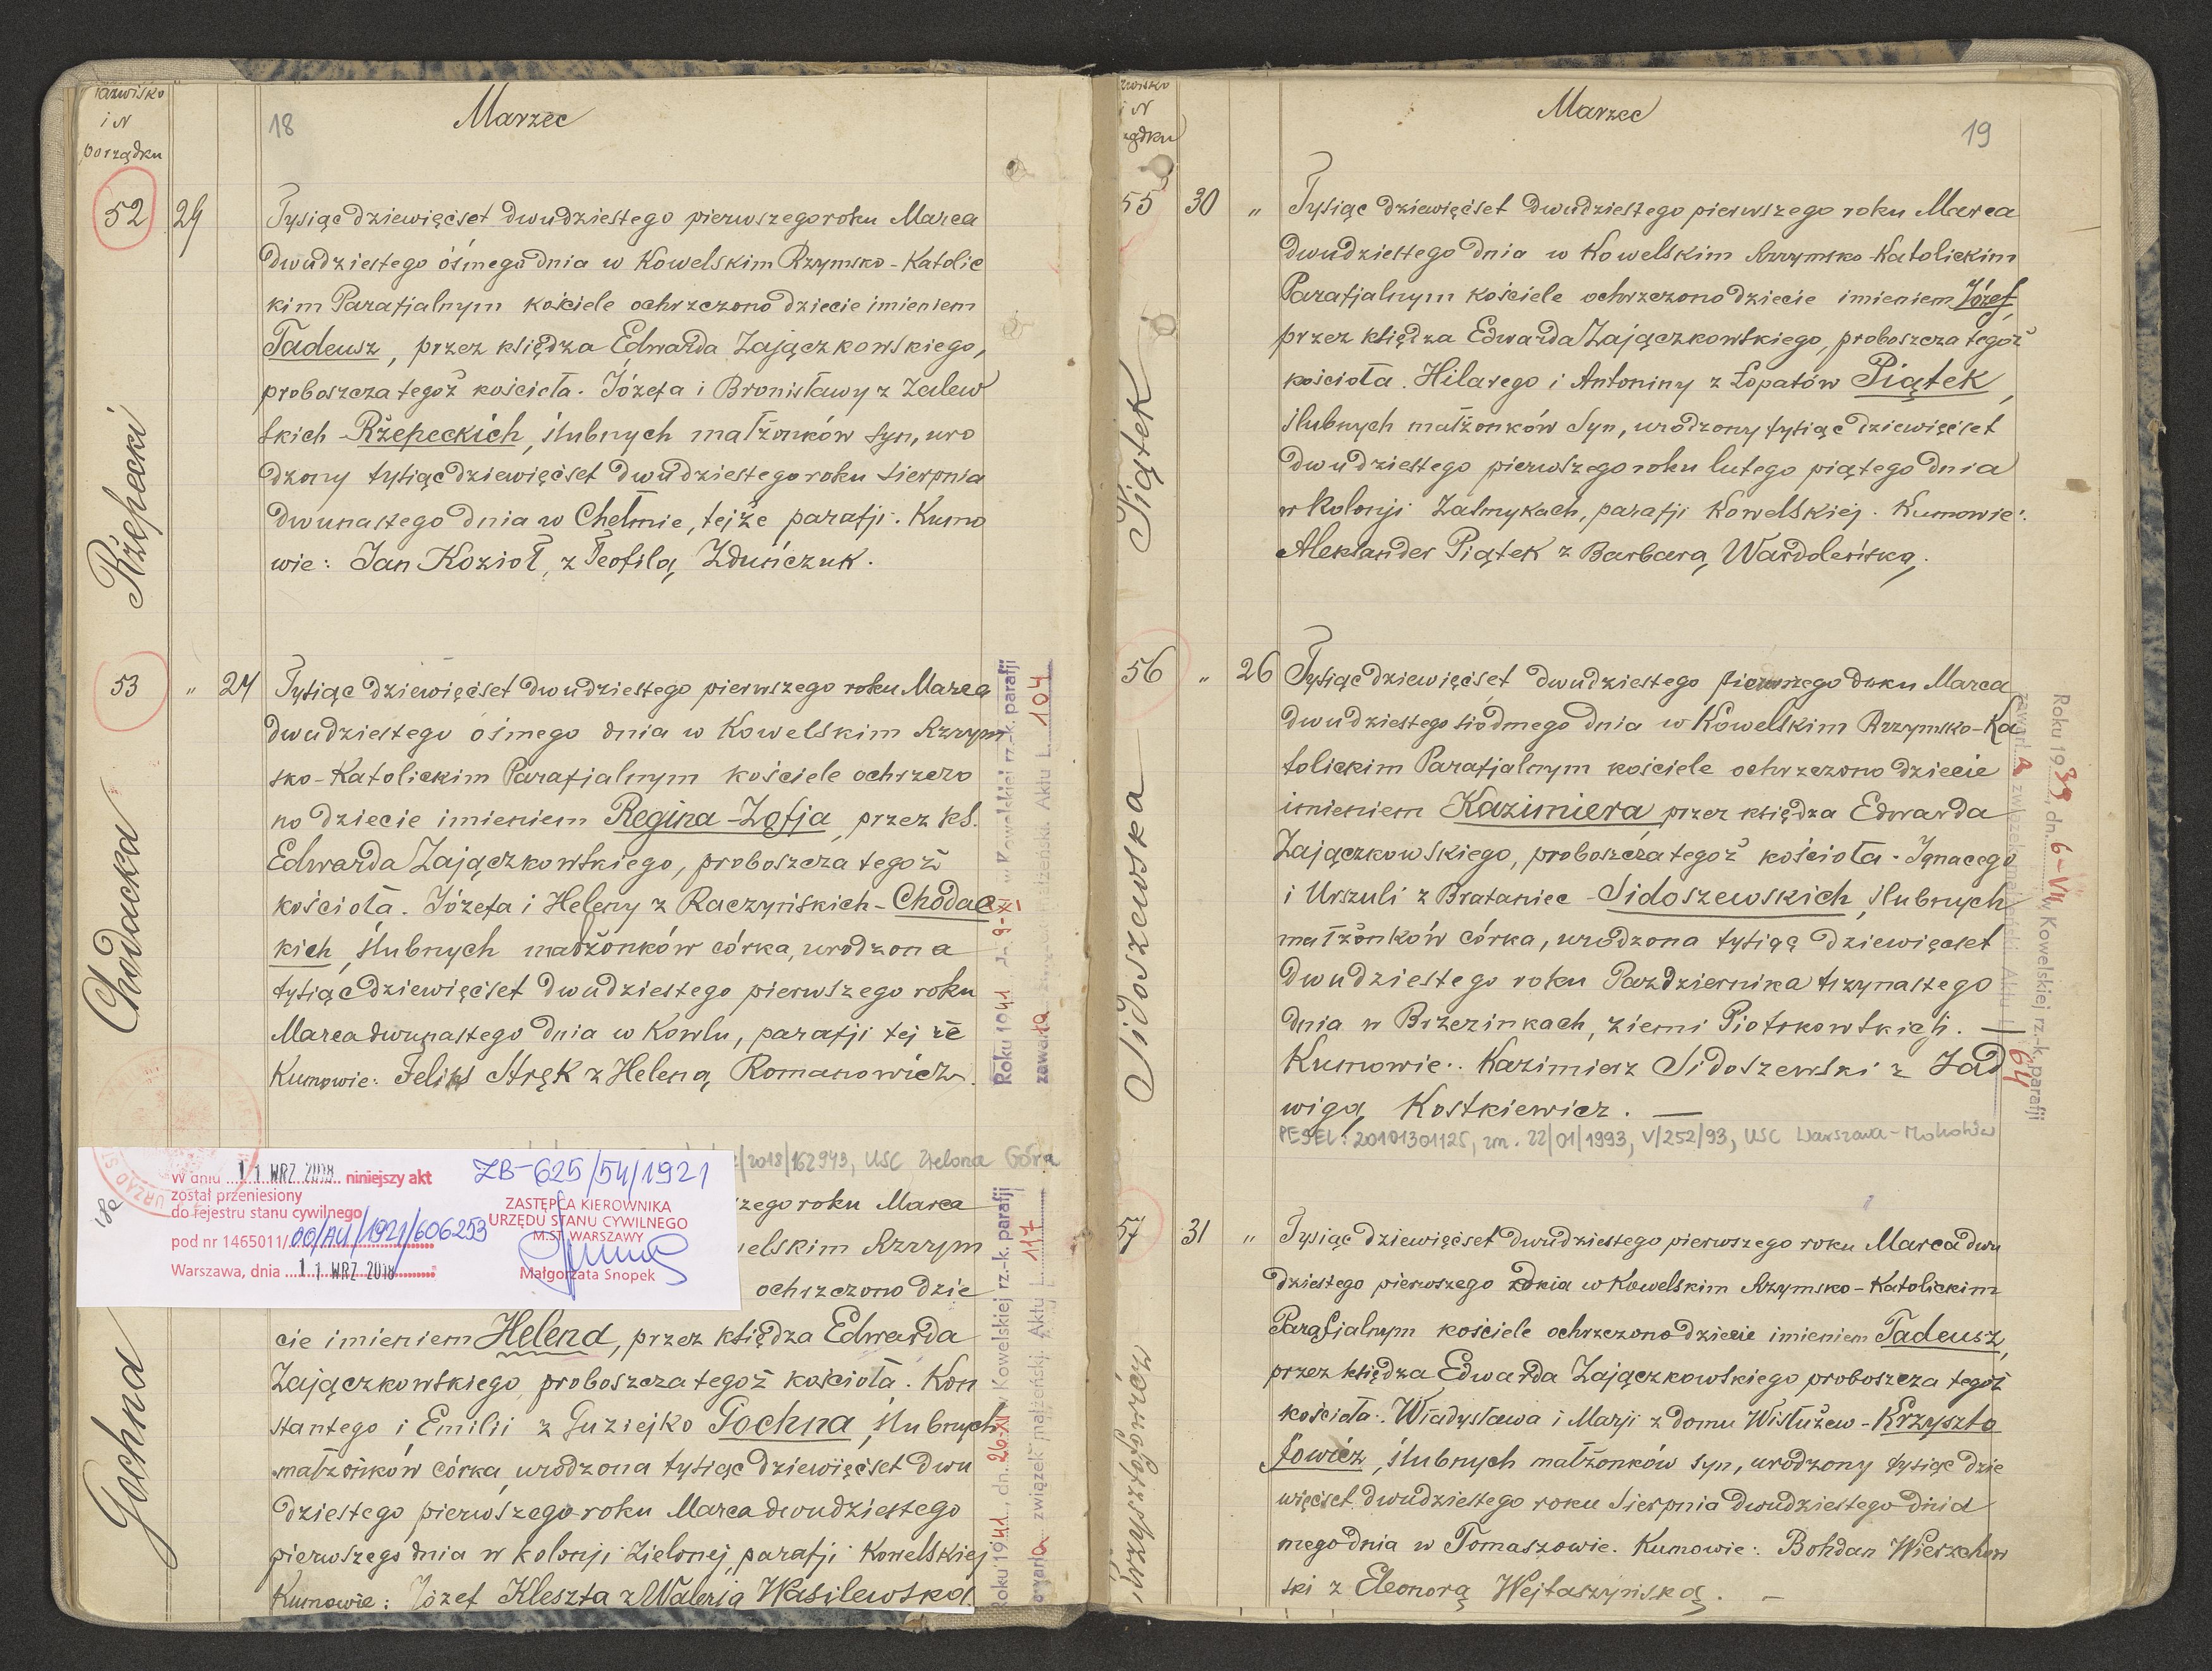 Nazwisko
i N
porządku
18
Marzec
52
29
Rżepecki
Tysiąc dziewięćset dwudziestego pierwszego roku Marca
dwudziestego ósmego dnia w Kowelskim Rzymsko-Katolic
kim Parafjalnym kościele ochrzczono dziecie imieniem
Tadeusz, przez księdza Edwarda Zajączkowskiego,
proboszcza tegoż kościoła. Józefa i Bronisławy z Zalew
skich Rżepeckich, ślubnych małżonków syn, uro
dzony tysiąc dziewięćset dwudziestego roku sierpnia
dwunastego dnia w Chełmie, tejże parafji. Kumo
wie: Jan Kozioł, z Teofilą Zduńczuk.
53
"
24
Chodacka
Tysiąc dziewięćset dwudziestego pierwszego roku Marca
dwudziestego ósmego dnia w Kowelskim Rzym
sko-Katolickim Parafjalnym kościele ochrzczo
no dziecie imieniem Regina-Zofja, przez ks.
Edwarda Zajączkowskiego, proboszcza tegoż
kościoła. Józefa i Heleny z Raczyńskich-Chodac
kich, ślubnych małżonków córka, urodzona
tysiąc dziewięćset dwudziestego pierwszego roku
Marca dwunastego dnia w Kowlu, parafji tej że
Kumowie: Feliks Stręk z Heleną Romanowicz.
Roku 1941, dn. 9-XI w Kowelskiej rz.-k. parafji
zawarła związek małżeński. Aktu L. 104
/2018/162943, USC Zielona Góra
W dniu 11 WRZ 2018 niniejszy akt
został przeniesiony
do rejestru stanu cywilnego
pod nr 1465011/00/AU/1921/606253
Warszawa, dnia 11 WRZ 2018
ZB-625/54/1921
ZASTĘPCA KIEROWNIKA
URZĘDU STANU CYWILNEGO
M.ST. WARSZAWY
Małgorzata Snopek
Gochna
zego roku Marca
welskim Rzym
ochrzczono dzie
cie imieniem Helena, przez księdza Edwarda
Zajączkowskiego, proboszcza tegoż kościoła. Kon
stantego i Emilii z Guziejko Gochna, ślubnych
małżonków córka, urodzona tysiąc dziewięćset dwu
dziestego pierwszego roku Marca dwudziestego
pierwszego dnia w kolonji Zielonej, parafji Kowelskiej
Kumowie: Józef Kleszta z Walerją Wasilewską
Roku 1941, dn. 26-XI Kowelskiej rz.-k. parafji
zawarła związek małżeński. Aktu L. 117
Nazwisko
i N
porządku
Marzec
19
55
30
"
Piątek
Tysiąc dziewięćset dwudziestego pierwszego roku Marca
dwudziestego dnia w Kowelskim Rzymsko-Katolickim
Parafjalnym kościele ochrzczono dziecie imieniem Józef,
przez księdza Edwarda Zajączkowskiego, proboszcza tegoż
kościoła. Hilarego i Antoniny z Łopatów Piątek,
ślubnych małżonków syn, urodzony tysiąc dziewięćset
dwudziestego pierwszego roku lutego piątego dnia
w Kolonji Zalmykach, parafji Kowelskiej. Kumowie:
Aleksander Piątek z Barbarą Wardoleńską.
56
"
26
Sidoszewska
Tysiąc dziewięćset dwudziestego pierwszego roku Marca
dwudziestego siódmego dnia w Kowelskim Rzymsko-Ka
tolickim Parafjalnym kościele ochrzczono dziecie
imieniem Kazimiera przez księdza Edwarda
Zajączkowskiego, proboszcza tegoż kościoła. Ignacego
i Urszuli z Brataniec-Sidoszewskich, ślubnych
małżonków córka, urodzona tysiąc dziewięćset
dwudziestego roku Października trzynastego
dnia w Brzezinkach, ziemi Piotrkowskiej. —
Kumowie: Kazimierz Sidoszewski z Jad
wigą Kostkiewicz. —
PESEL: 20101301125, zm. 22/01/1993, V/252/93, USC Warszawa-Mokotów
Roku 1939, dn. 6-VII w Kowelskiej rz.-k. parafji
zawarła związek małżeński. Aktu L. 64
57
31
"
Krzysztofowicz
Tysiąc dziewięćset dwudziestego pierwszego roku Marca dwu
dziestego pierwszego dnia w Kowelskim Rzymsko-Katolickim
Parafjalnym kościele ochrzczono dziecie imieniem Tadeusz,
przez księdza Edwarda Zajączkowskiego proboszcza tegoż
kościoła. Władysława i Marji z domu Wistużew-Krzyszto
fowicz, ślubnych małżonków syn, urodzony tysiąc dzie
więćset dwudziestego roku Sierpnia dwudziestego dnia
mego dnia w Tomaszowie. Kumowie: Bohdan Wierzchow
ski z Eleonorą Wejtaszyńską. —